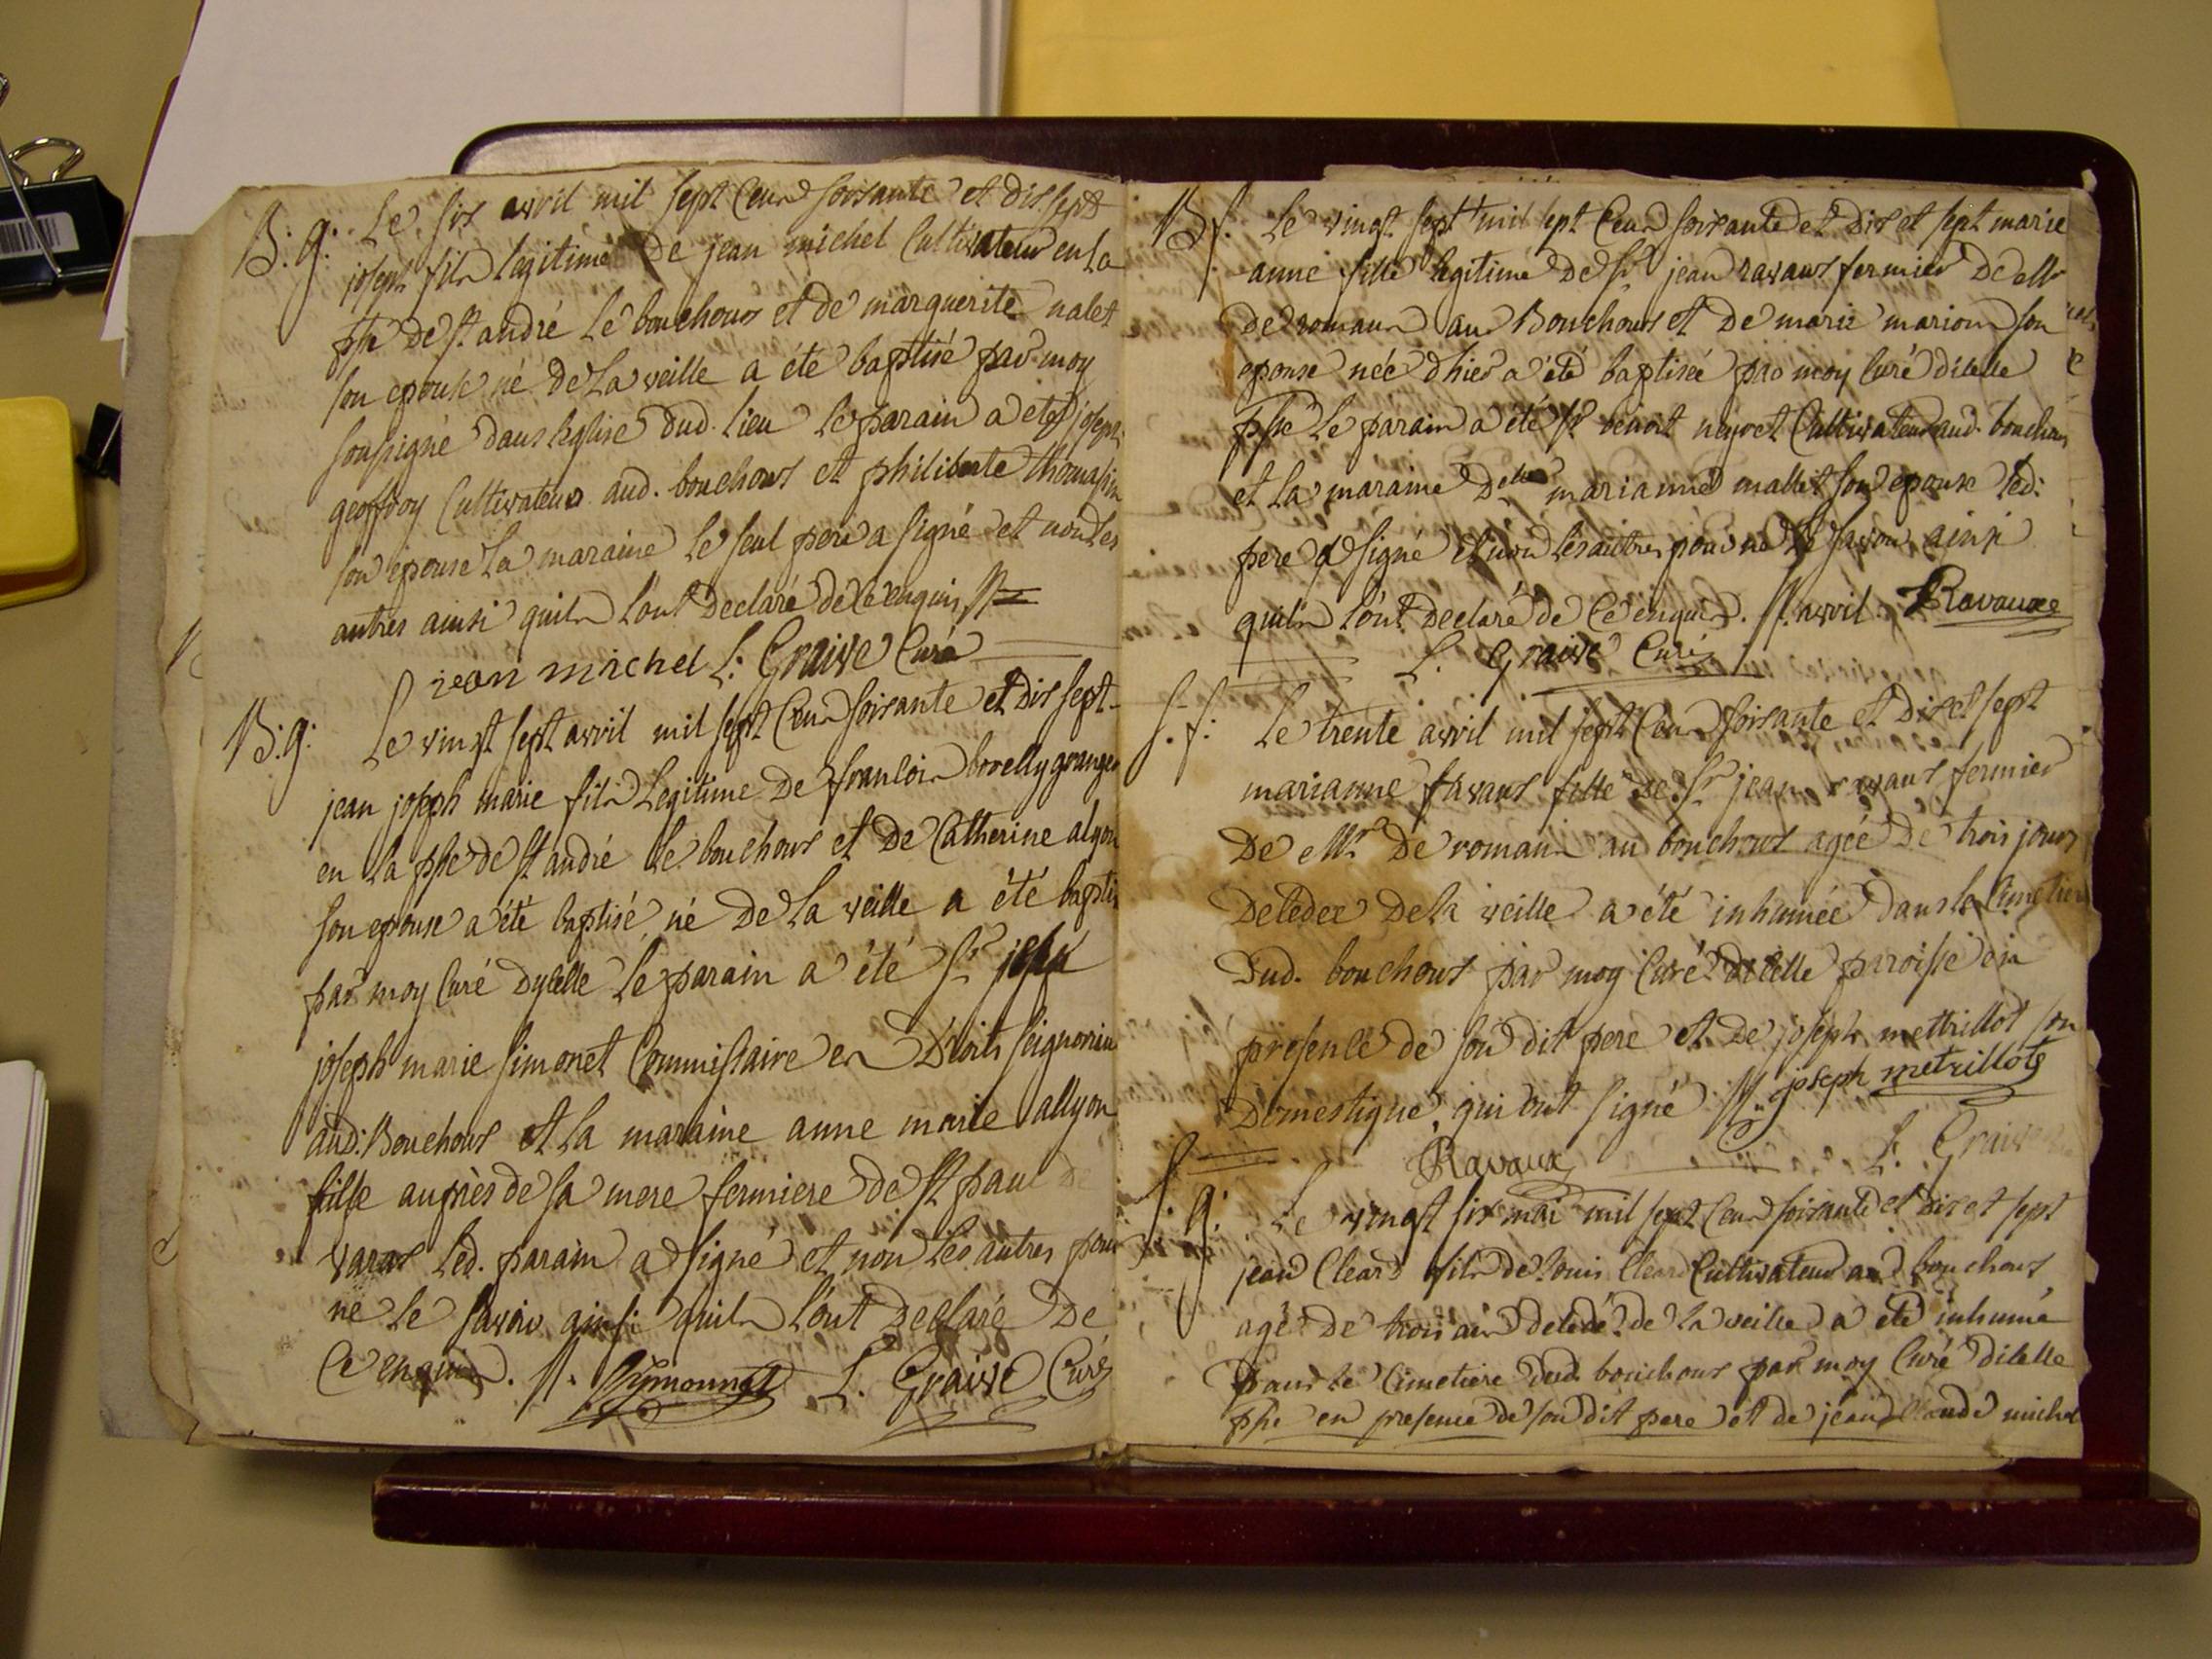 B. g. Le six avril mil sept Cens soixante et dix sept
joseph fils legitime De jean michel Cultivateur en la
psse De st andré Le bouchoux et de marguerite nalet
son epouse né De La veille a été baptisé par moy
soussigné dans leglise dud. lieu Le parain a eté joseph
geoffroy Cultivateur aud. bouchoux et philiberte thomassin
son epouse La maraine Le seul pere a signé et non les
autres ainsi quils l'ont Declaré de Ce enquis //=
jean michel L. Graive Curé
B. g. Le vingt sept avril mil sept Cens soixante et Dix sept
jean joseph marie fils Legitime De francois granger
en La psse De st andré Le bouchoux et De Catherine
son epouse a été baptisé né De La veille a été
par moy Curé Dycelle Le parain a été sr
joseph marie simonet Commissaire en Droits
aud. Bouchoux et La maraine anne marie allyon
fille auprès de sa mere fermiere De st paul de
varax Led. parain a signé et non Les autres pour
ne Le savoir ainsi quils l'ont Declaré De
Ce enquis. //. Symonnet L. Graive Curé
B. f. Le vingt sept mil sept Cens soixante et Dix et sept marie
anne fille legitime De sr jean ravaux fermier De Mr
De romans au Bouchoux et De marie marion son
epouse née d'hier a été baptisée par moy Curé dicelle
psse Le parain a été sr benoit neyret Cultivateur aud. bouchoux
et La maraine Delle marianne mallet son epouse led.
pere a signé et non les autres pour ne Le savoir ainsi
quils l'ont Declaré de Ce enquis. //. avril Ravaux
L. Graive Curé
S. f. Le trente avril mil sept Cens soixante et Dix et sept
marianne ravaux fille De sr jean ravaux fermier
De Mr De romans au bouchoux agée De trois jours
Decedee De la veille a été inhumée dans le Cimetiere
Dud. bouchoux par moy Curé Dicelle paroisse en
presence de son dit pere et De joseph mettrillot son
Domestique, qui ont signé //. joseph metrillot
Ravaux L. Graive
S. g. Le vingt six mai mil sept Cens soixante et dix et sept
jean Cleard fils de louis Cleard Cultivateur au bouchoux
agé De trois ans decedé de la veille a eté inhumé
Dans le Cimetiere dud. bouchoux par moy Curé dicelle
psse en presence de son dit pere et de jean Claude michel